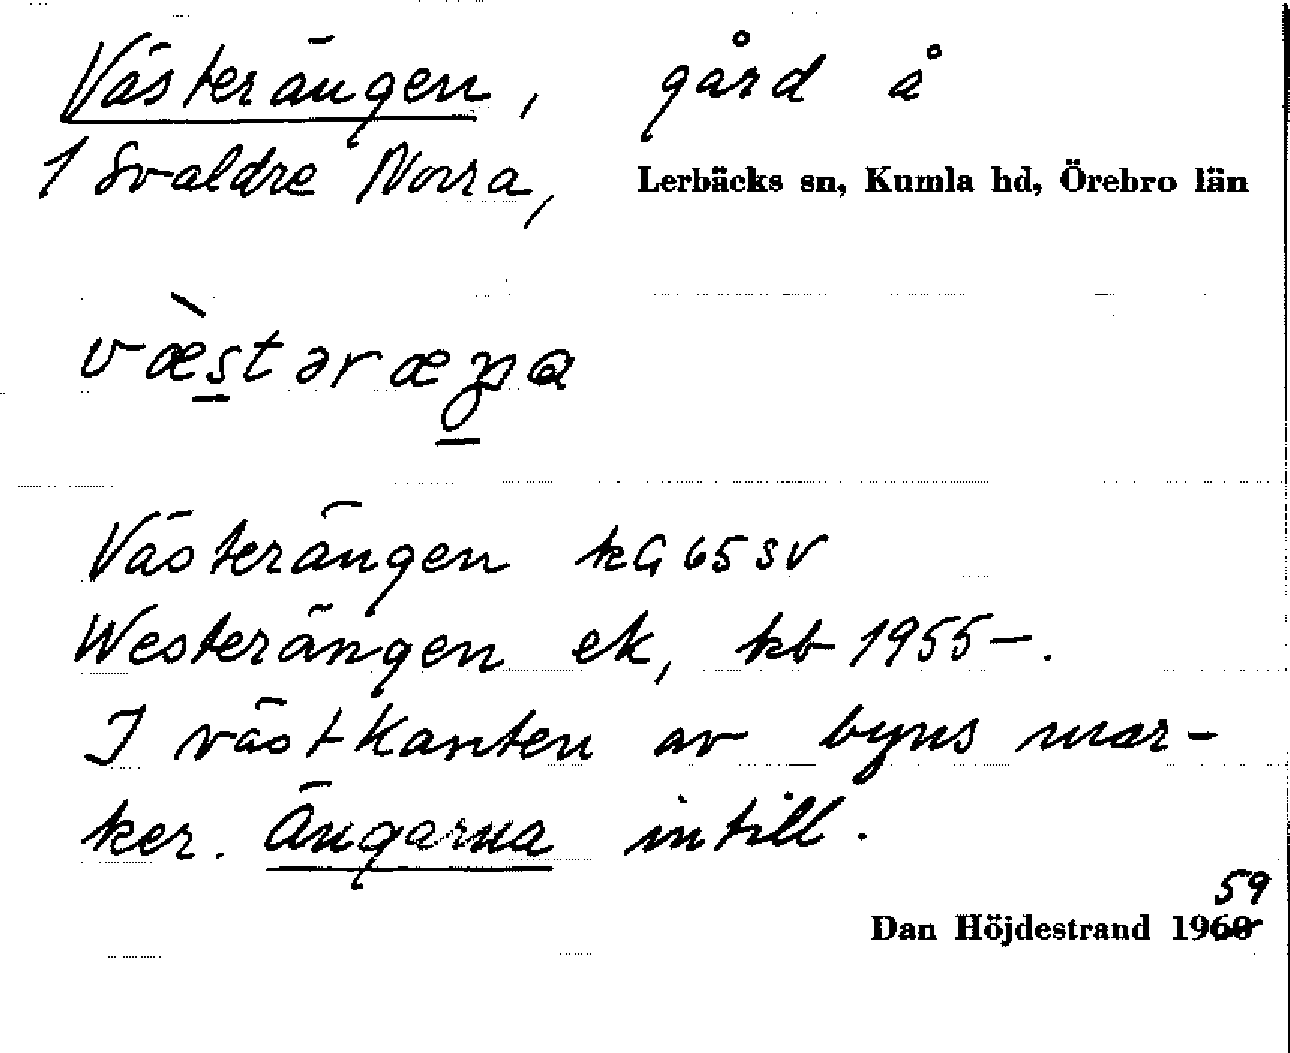 Västerängen, gård å
1 Svaldre Norra, Lerbäcks sn, Kumla hd, Örebro län
Västerängen kG 65 SV
Westerängen ek, kb 1955–.
I västkanten av byns mar-
ker. Ängarna intill.
59
Dan Höjdestrand 1960